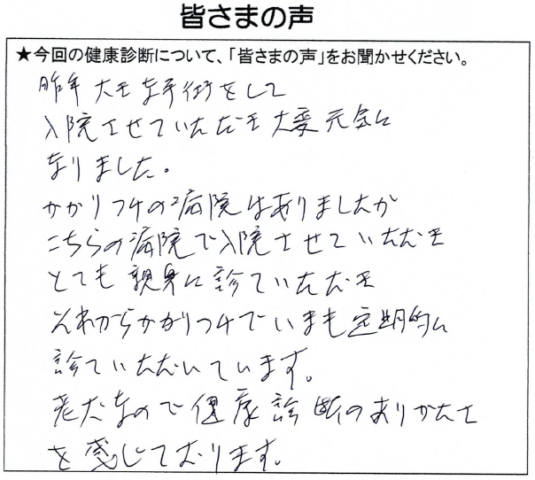 皆さまの声
★今回の健康診断について、「皆さまの声」をお聞かせください。
昨年 大きな手術をして
入院させていただき大変元気に
なりました。
かかりつけの病院はありましたが
こちらの病院で入院させていただき
とても親身に診ていただき
それからかかりつけでいまも定期的に
診ていただいています。
老犬なので健康診断のありがたさ
を感じております。